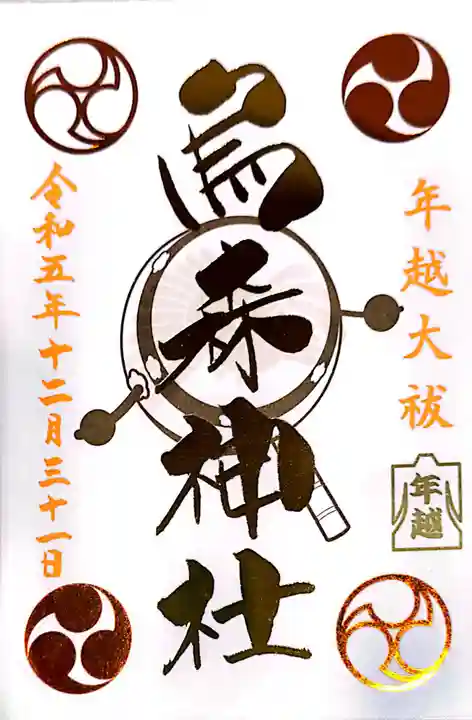 年越大祓
年越
烏森神社
令和五年十二月三十一日